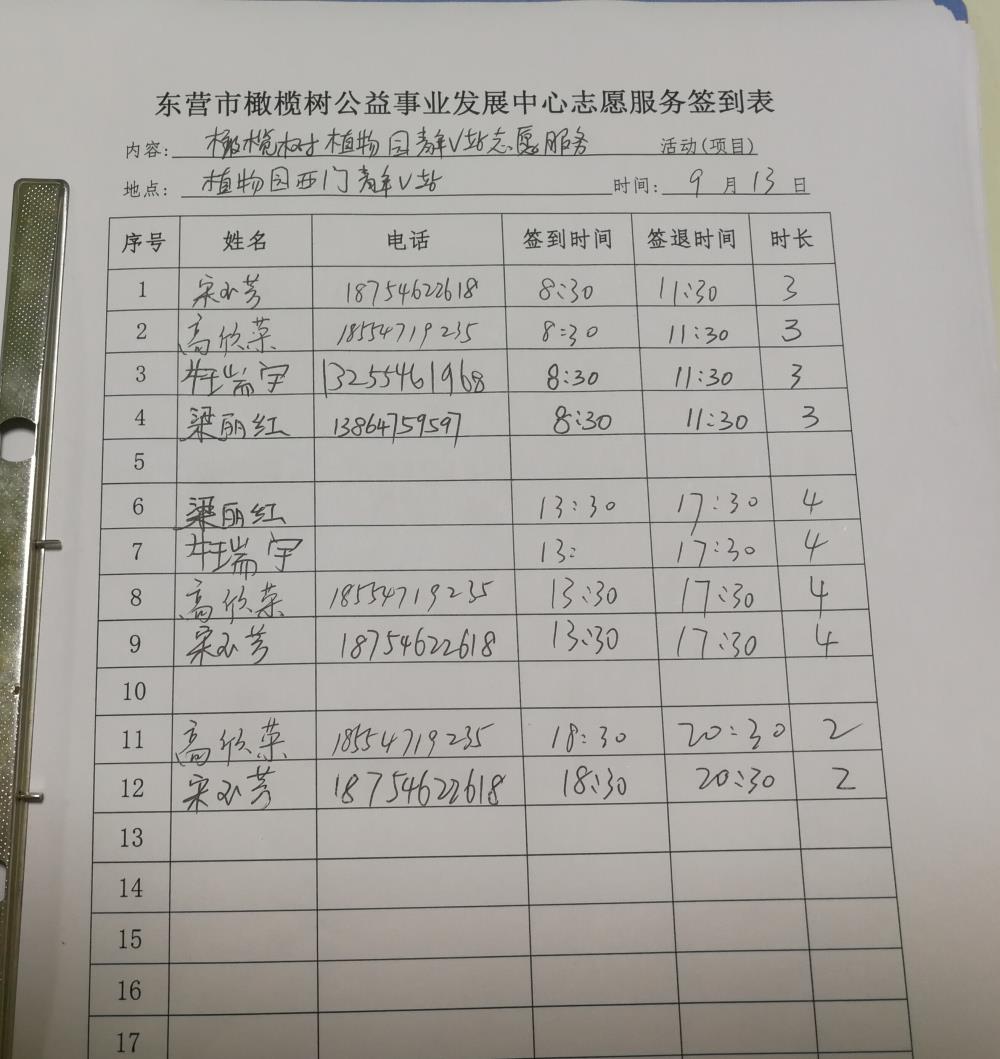 东营市橄榄树公益事业发展中心志愿服务签到表
内容: 橄榄树植物园青年V站志愿服务 活动(项目)
地点: 植物园西门青年V站 时间: 9 月 13 日
序号 姓名 电话 签到时间 签退时间 时长
1 宋小芳 18754622618 8:30 11:30 3
2 高欣荣 18554719235 8:30 11:30 3
3 牛瑞宇 13255461968 8:30 11:30 3
4 梁丽红 13864759597 8:30 11:30 3
5
6 梁丽红 13:30 17:30 4
7 牛瑞宇 13: 17:30 4
8 高欣荣 18554719235 13:30 17:30 4
9 宋小芳 18754622618 13:30 17:30 4
10
11 高欣荣 18554719235 18:30 20:30 2
12 宋小芳 18754622618 18:30 20:30 2
13
14
15
16
17